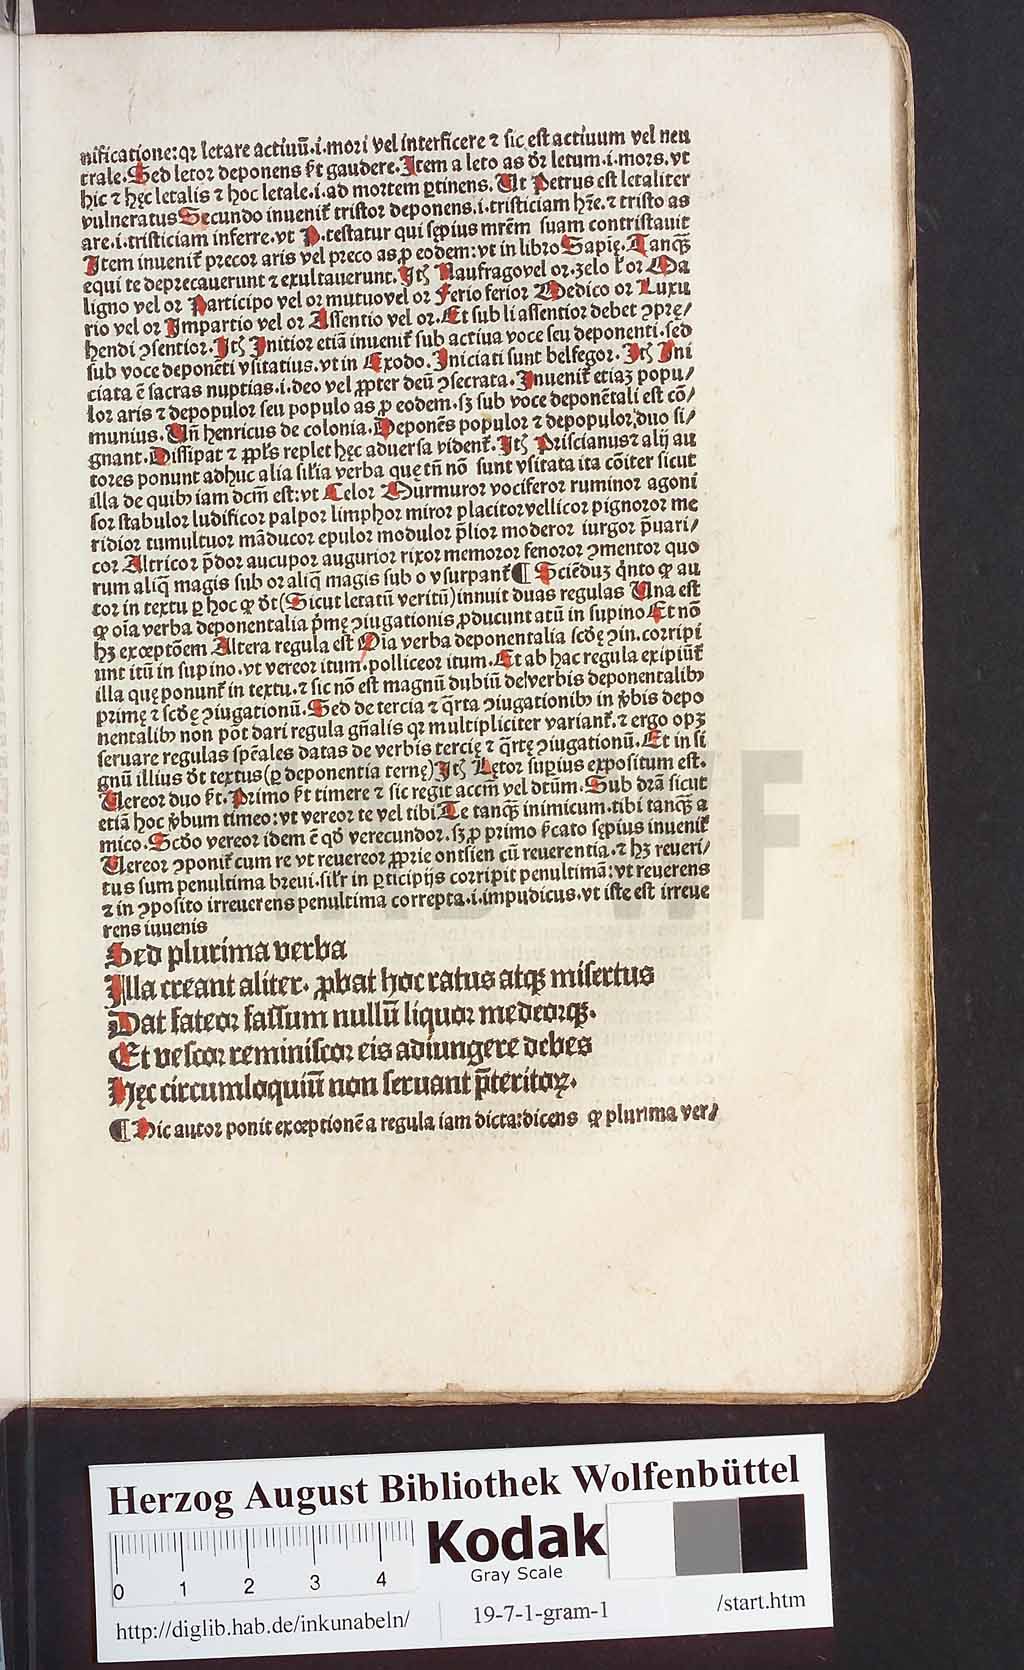 nificatione: qꝛ letare actiuū.i.moꝛi vel interficere ⁊ sic est actiuum vel neu
trale. Sed letoꝛ deponens st̄ gaudere. Item a leto as dꝛ̄ letum.i.moꝛs. vt
hic ⁊ hęc letalis ⁊ hoc letale.i.ad moꝛtem ꝑtinens. Ut Petrus est letaliter
vulneratus Secundo inuenit᷑ tristoꝛ deponens.i.tristiciam hr̄e. ⁊ tristo as
are.i.tristiciam inferre. vt P. testatur qui sępius mr̄em suam contristauit
Item inuenit᷑ precoꝛ aris vel preco as ꝓ eodem: vt in libro Sapię. Tanqȝ
equi te deprecauerunt ⁊ exultauerunt. Itē Naufrago vel oꝛ. zelo l̓ oꝛ Ma
ligno vel oꝛ Participo vel oꝛ mutuo vel oꝛ Ferio ferioꝛ Medico oꝛ Luxu
rio vel oꝛ Impartio vel oꝛ Assentio vel oꝛ. Et sub li assentioꝛ debet ꝯprę/
hendi ꝯsentioꝛ. Itē Initioꝛ etiā inuenit᷑ sub actiua voce seu deponenti. sed
sub voce deponēti vsitatius. vt in Exodo. Iniciati sunt belfegoꝛ. Itē Ini
ciata ē sacras nuptias.i.deo vel ꝓpter deū ꝯsecrata. Inuenit᷑ etiaȝ popu/
loꝛ aris ⁊ depopuloꝛ seu populo as ꝓ eodem. sȝ sub voce deponētali est cō/
munius. Un̄ henricus de colonia. Deponēs populoꝛ ⁊ depopuloꝛ, duo si/
gnant. Dissipat ⁊ ꝓpl̓s replet hęc aduersa vident᷑. Itē Priscianus ⁊ alij au
toꝛes ponunt adhuc alia sil̓ia verba que tn̄ nō sunt vsitata ita cōiter sicut
illa de quibꝰ iam dcm̄ est: vt Celoꝛ Murmuroꝛ vociferoꝛ ruminoꝛ agoni
soꝛ stabuloꝛ ludificoꝛ palpoꝛ limphoꝛ miroꝛ placitoꝛ vellicoꝛ pignoꝛoꝛ me
ridioꝛ tumultuoꝛ māducoꝛ epuloꝛ moduloꝛ p̄lioꝛ moderoꝛ iurgoꝛ p̄uari/
coꝛ Altricoꝛ p̄doꝛ aucupoꝛ augurioꝛ rixoꝛ memoꝛoꝛ fenoꝛoꝛ ꝯmentoꝛ quo
rum aliq̄ magis sub oꝛ aliq̄ magis sub o vsurpant᷑ ¶ Sciēduȝ q̇nto ꝙ au
toꝛ in textu ꝑ hoc ꝙ dt̄ (Sicut letatū veritū) innuit duas regulas Una est
ꝙ oīa verba deponentalia p̄mę ꝯiugationis ꝓducunt atū in supino Et nō
hȝ exceptōem Altera regula est Oīa verba deponentalia scd̄ę ꝯin. coꝛripi
unt itū in supino. vt vereoꝛ itum. polliceoꝛ itum. Et ab hac regula exipiūt᷑
illa quę ponunt᷑ in textu. ⁊ sic nō est magnū dubiū de verbis deponentalibꝰ
primę ⁊ scd̄ę ꝯiugationū. Sed de tercia ⁊ q̄rta ꝯiugationibꝰ in ṽbis depo
nentalibꝰ non pōt dari regula gn̄alis qꝛ multipliciter variant᷑. ⁊ ergo opȝ
seruare regulas spēales datas de verbis tercię ⁊ q̄rtę ꝯiugationū. Et in si
gnū illius dt̄ textus (ꝑ deponentia ternę) Itē Lętoꝛ supius expositum est.
Uereoꝛ duo st̄. Primo st̄ timere ⁊ sic regit accm̄ vel dtm̄. Sub dr̄a sicut
etiā hoc ṽbum timeo: vt vereoꝛ te vel tibi Te tanqȝ inimicum. tibi tanqȝ a
mico. Scd̄o vereoꝛ idem ē qd̓ verecundoꝛ. sȝ ꝓ primo s̄cato sępius inuenit᷑
Uereoꝛ ꝯponit᷑ cum re vt reuereoꝛ ꝓprie ontsien cū reuerentia. ⁊ hȝ reueri/
tus sum penultima breui. sil̓r in ꝑticipijs coꝛripit penultimā: vt reuerens
⁊ in ꝯposito irreuerens penultima coꝛrepta.i.impudicus. vt iste est irreue
rens iuuenis
Sed plurima verba
Illa creant aliter. ꝓbat hoc ratus atqȝ misertus
Dat fateoꝛ fassum nullū liquoꝛ medeoꝛqȝ.
Et vescoꝛ reminiscoꝛ eis adiungere debes
Hęc circumloquiū non seruant p̄teritoꝝ.
¶ Hic autoꝛ ponit exceptionē a regula iam dicta: dicens ꝙ plurima ver/
HAB WF
Herzog August Bibliothek Wolfenbüttel
Kodak
Gray Scale
0 1 2 3 4
http://diglib.hab.de/inkunabeln/ 19-7-1-gram-1 /start.htm